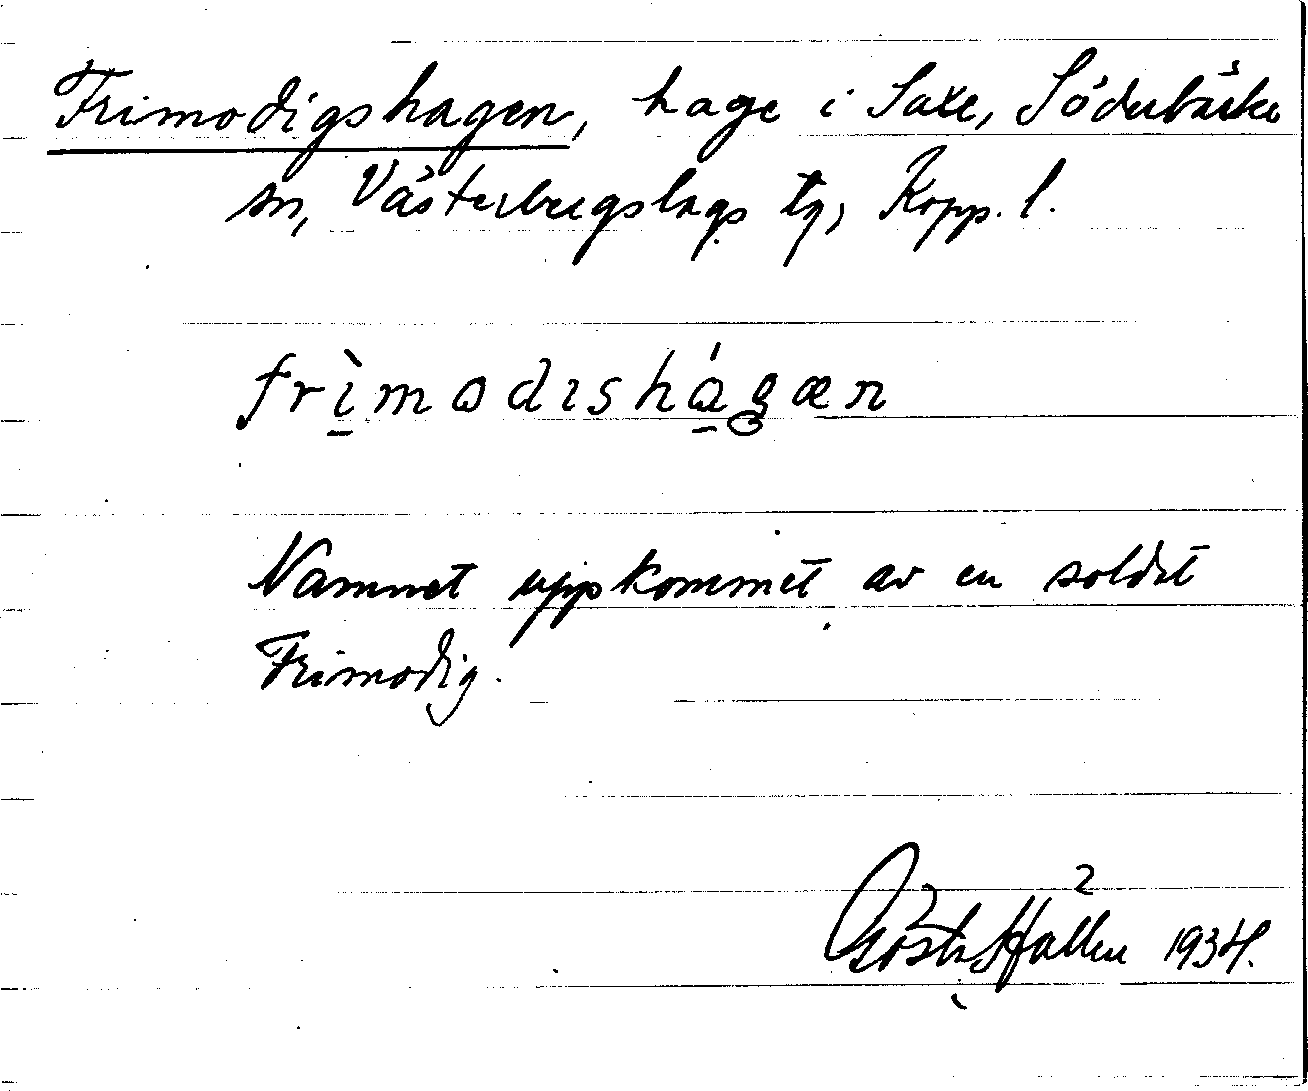 Frimodigshagen, hage i Saxe, Söderbärke
sn, Västerbergslags tg, Kopp. l.
frìmodıshágæn
Namnet uppkommet av en soldat
Frimodig.
Gösta Hällen 1934.